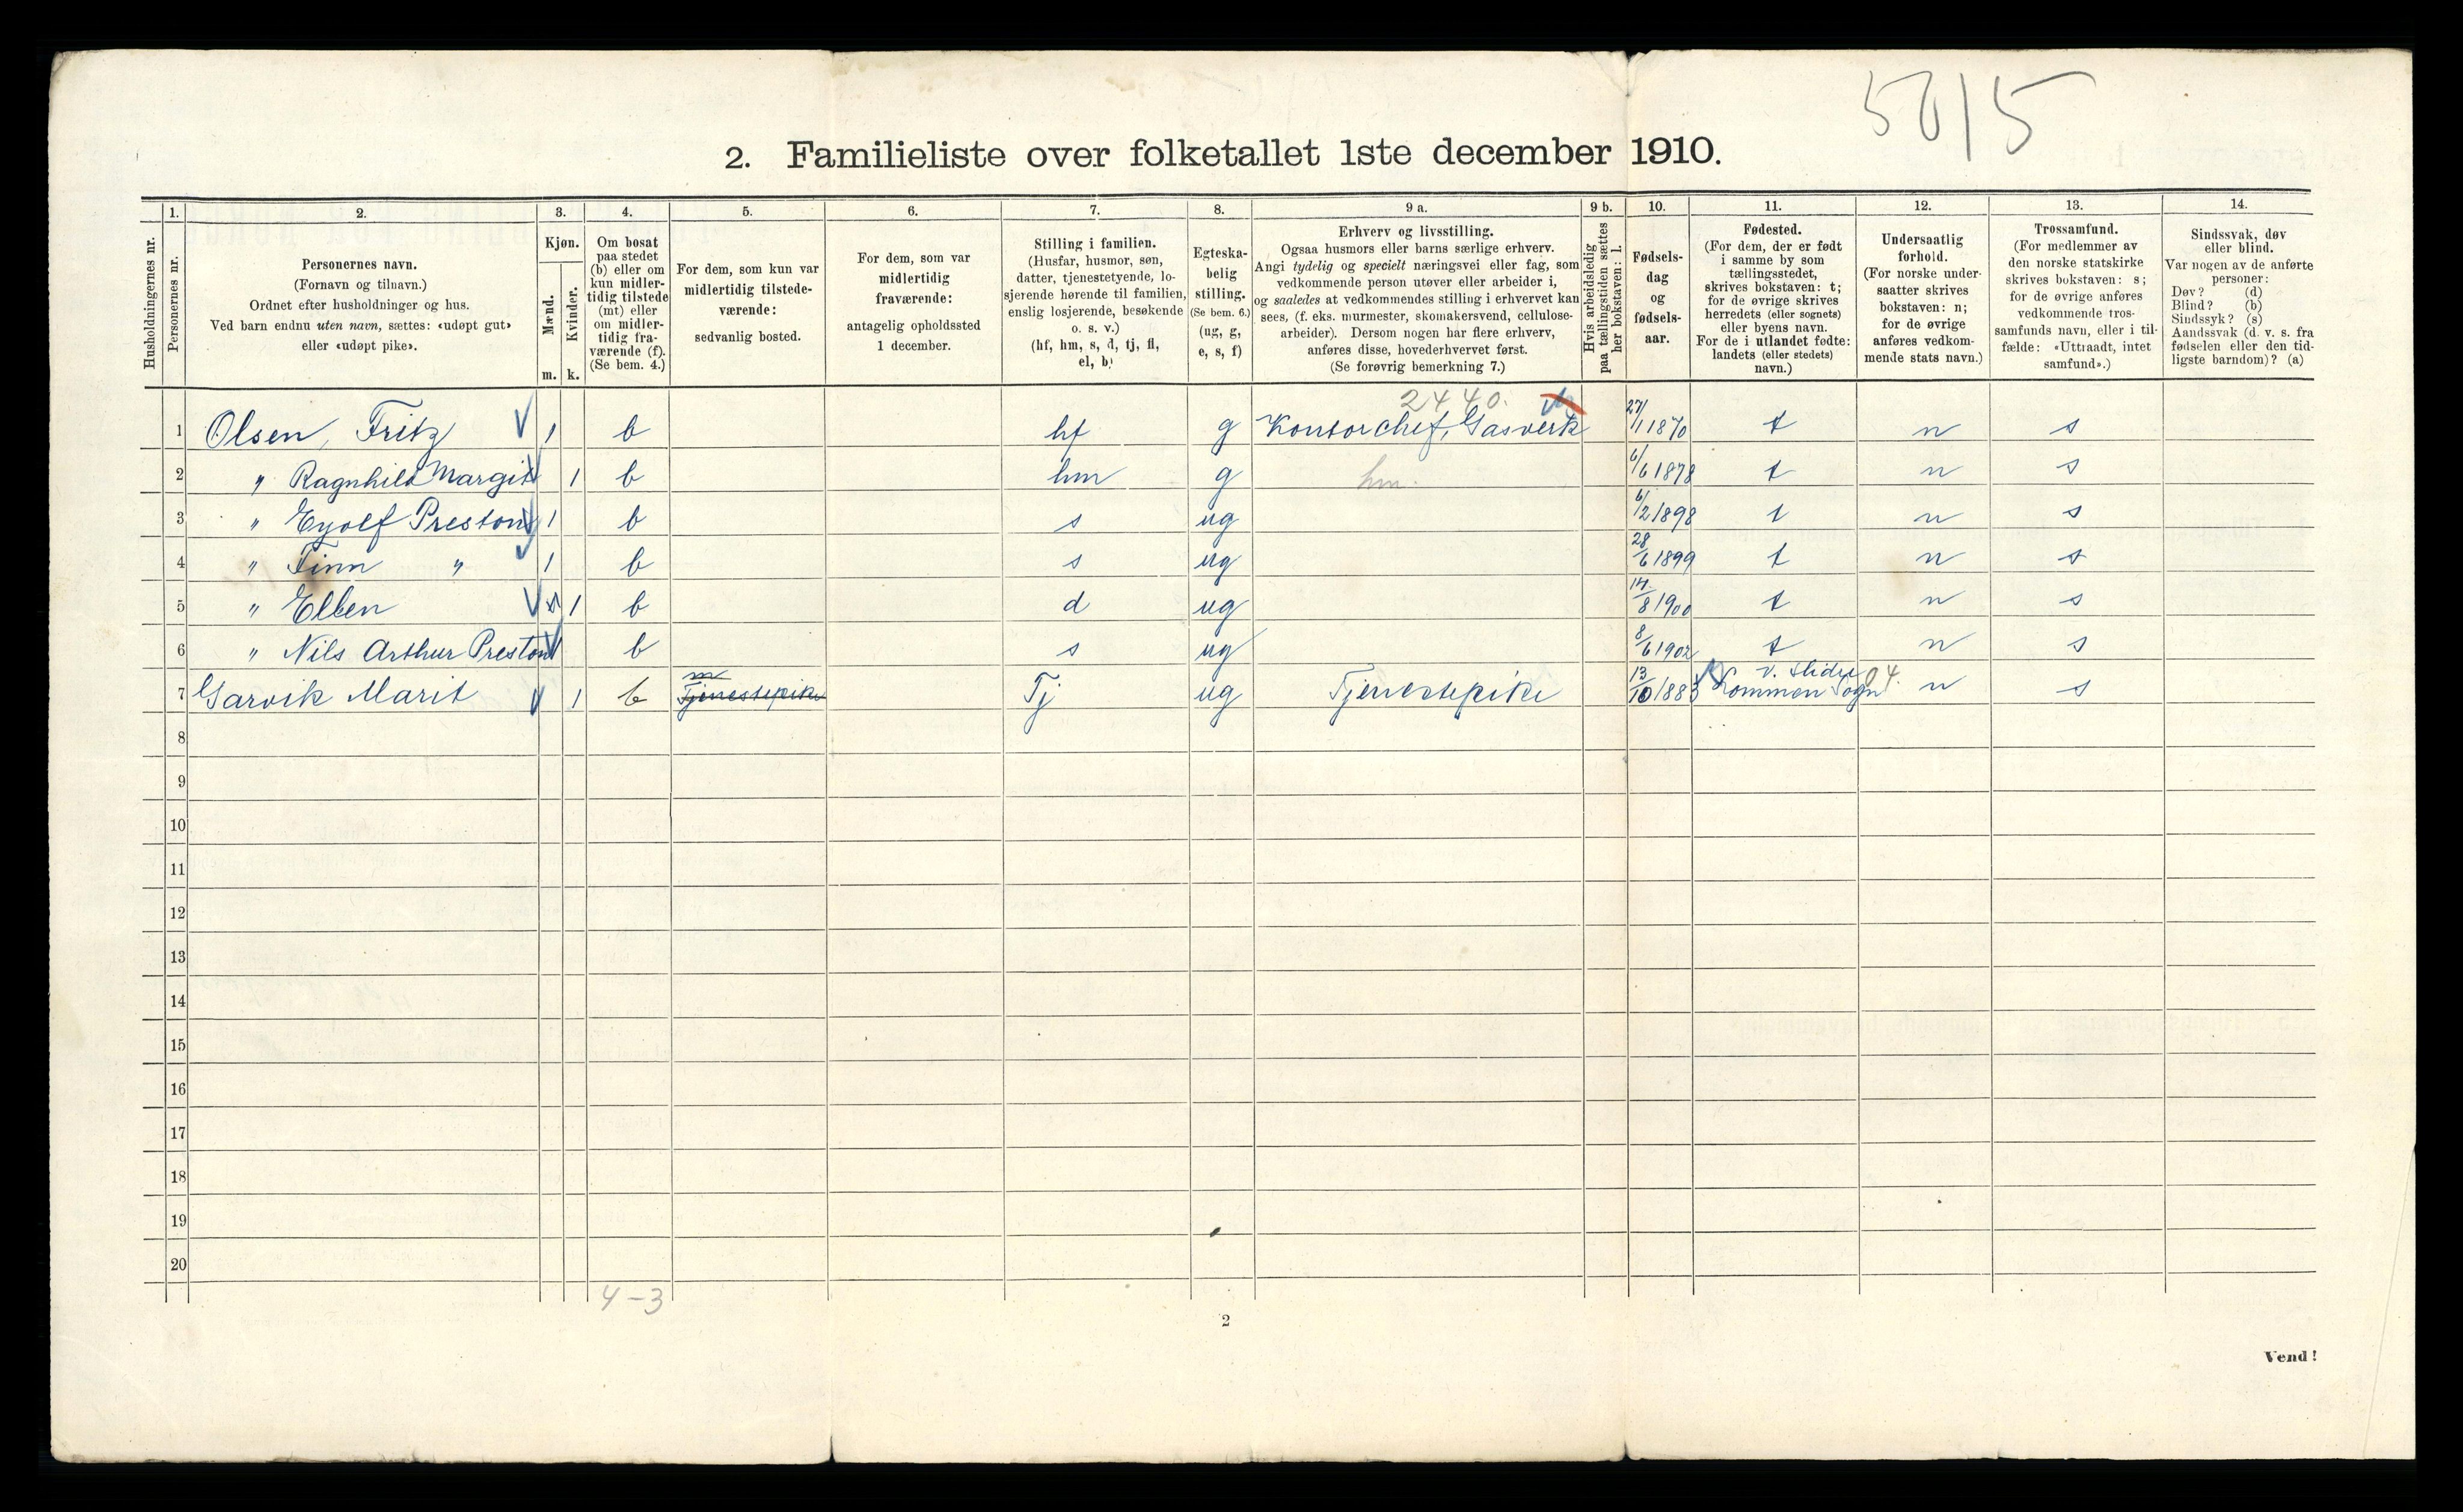 5015
2. Familieliste over folketallet 1ste december 1910.
Husholdningernes nr.
1.
Personernes nr.
2.
Personernes navn.
(Fornavn og tilnavn.)
Ordnet efter husholdninger og hus.
Ved barn endnu uten navn, sættes: «udøpt gut»
eller «udøpt pike».
3.
Kjøn.
Mænd.
Kvinder.
m. k.
4.
Om bosat
paa stedet
(b) eller om
kun midler-
tidig tilstede
(mt) eller
om midler-
tidig fra-
værende (f).
(Se bem. 4.)
5.
For dem, som kun var
midlertidig tilstede-
værende:
sedvanlig bosted.
6.
For dem, som var
midlertidig
fraværende:
antagelig opholdssted
1 december.
7.
Stilling i familien.
(Husfar, husmor, søn,
datter, tjenestetyende, lo-
sjerende hørende til familien,
enslig losjerende, besøkende
o. s. v.)
(hf, hm, s, d, tj, fl,
el, b)
8.
Egteska-
belig
stilling.
(Se bem. 6.)
(ug, g,
e, s, f)
9 a.
Erhverv og livsstilling.
Ogsaa husmors eller barns særlige erhverv.
Angi tydelig og specielt næringsvei eller fag, som
vedkommende person utøver eller arbeider i,
og saaledes at vedkommendes stilling i erhvervet kan
sees, (f. eks. murmester, skomakersvend, cellulose-
arbeider). Dersom nogen har flere erhverv,
anføres disse, hovederhvervet først.
(Se forøvrig bemerkning 7.)
9 b.
Hvis arbeidsledig
paa tællingstiden sættes
her bokstaven: l.
10.
Fødsels-
dag
og
fødsels-
aar.
11.
Fødested.
(For dem, der er født
i samme by som
tællingsstedet,
skrives bokstaven: t;
for de øvrige skrives
herredets (eller sognets)
eller byens navn.
For de i utlandet fødte:
landets (eller stedets)
navn.)
12.
Undersaatlig
forhold.
(For norske under-
saatter skrives
bokstaven: n;
for de øvrige
anføres vedkom-
mende stats navn.)
13.
Trossamfund.
(For medlemmer av
den norske statskirke
skrives bokstaven: s;
for de øvrige anføres
vedkommende tros-
samfunds navn, eller i til-
fælde: «Uttraadt, intet
samfund».)
14.
Sindssvak, døv
eller blind.
Var nogen av de anførte
personer:
Døv? (d)
Blind? (b)
Sindssyk? (s)
Aandssvak (d. v. s. fra
fødselen eller den tid-
ligste barndom)? (a)
2440.
1 Olsen, Fritz 1 b hf g Kontorchef, Gasverk 27/1 1870 t n s
2 " Ragnhild Margit 1 b hm g hm. 6/6 1878 t n s
3 " Eyolf Preston 1 b s ug 6/2 1898 t n s
4 " Finn " 1 b s ug 28/6 1899 t n s
5 " Ellen 1 b d ug 14/8 1900 t n s
6 " Nils Arthur Preston 1 b s ug 8/6 1902 t n s
m v. Slidre 04.
7 Garvik Marit 1 b Tjenestepike Tj ug Tjenestepike 13/10 1883 Lommen Sogn n s
8
9
10
11
12
13
14
15
16
17
18
19
20
4-3
2
Vend!